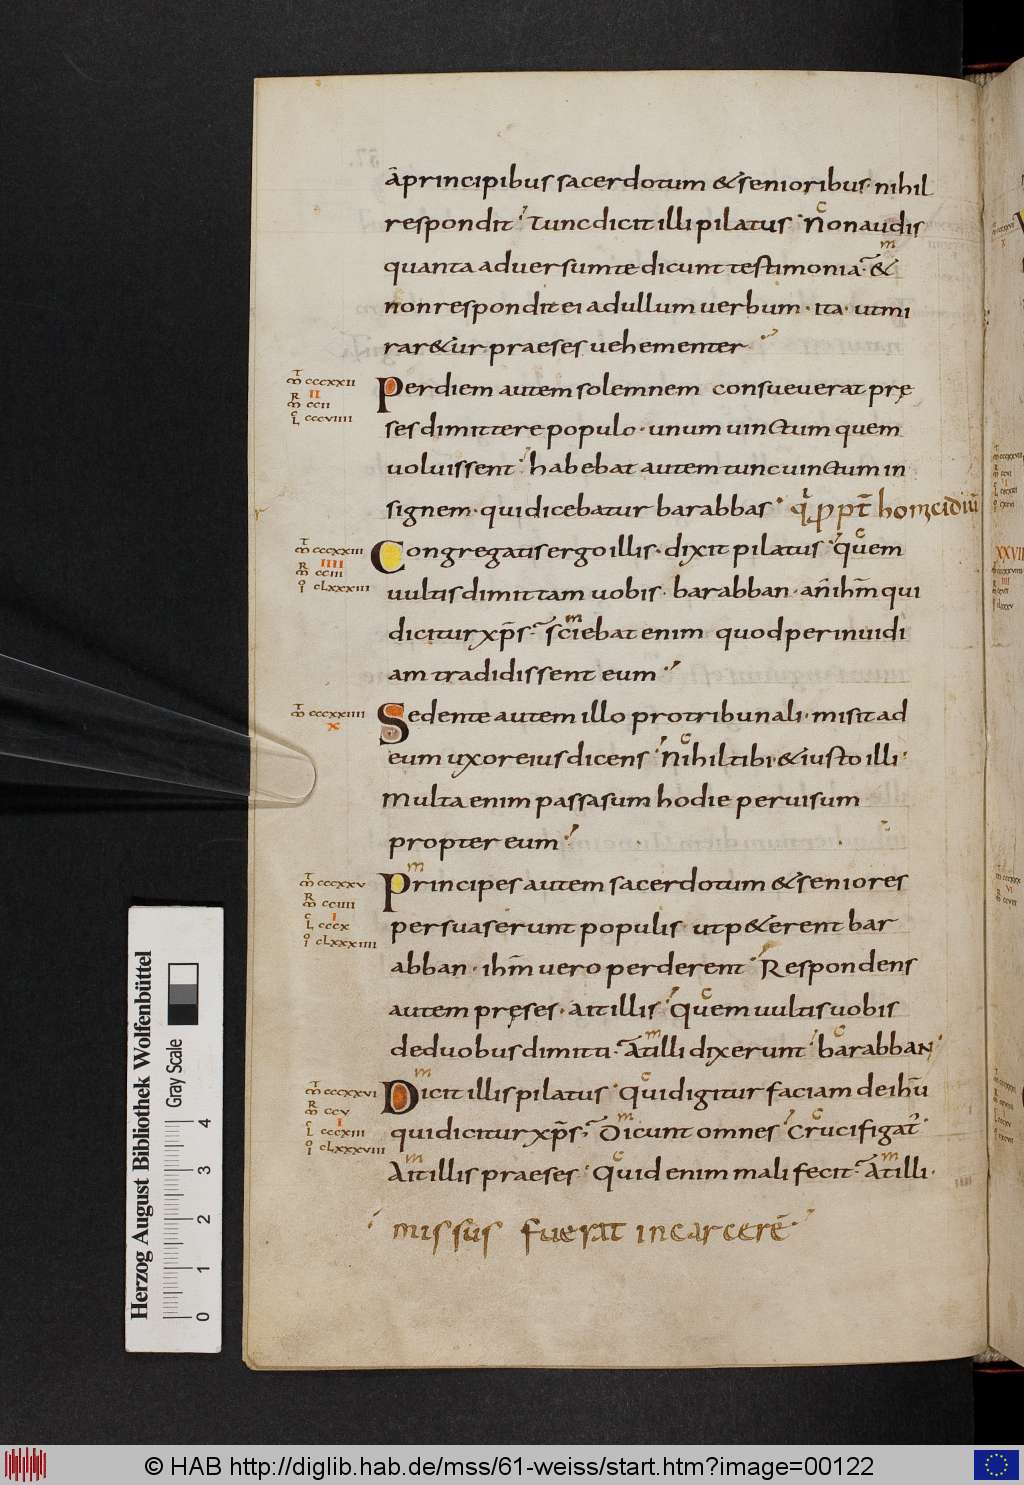 a principibus sacerdotum & senioribus · nihil
respondit · Tunc dicit illi pilatus · Non audis
quanta aduersum te dicunt testimonia · &
non respondit ei ad ullum uerbum · ita · ut mi
rar&ur praeses uehementer
T̄ m̄ cccxxii
II
R m̄ ccii
c L cccviiii
Per diem autem solemnem consueuerat prę
ses dimittere populo · unum uinctum quem
uoluissent · habebat autem tunc uinctum in
signem · qui dicebatur barabbas · q̇ ꝓpt̄ homicidiū
T̄ m̄ cccxxiii
IIII
R m̄ cciii
io clxxxiii
Congregatis ergo illis · dixit pilatus · quem
uultis dimittam uobis · barabban · an ihm̄ qui
dicitur xp̄s · sciebat enim quod per inuidi
am tradidissent eum
T̄ m̄ cccxxiiii
X
Sedente autem illo pro tribunali · misit ad
eum uxor eius dicens · Nihil tibi & iusto illi ·
Multa enim passa sum hodie per uisum
propter eum
T̄ m̄ cccxxv
R m̄ cciiii
I
c L cccx
io clxxxiiii
Principes autem sacerdotum & seniores
persuaserunt populis · ut p&erent bar
abban · ihm̄ uero perderent · Respondens
autem pręses · ait illis · Quem uultis uobis
de duobus dimitti · At illi dixerunt · barabban ·
T̄ m̄ cccxxvi
R m̄ ccv
I
c L cccxiii
io clxxxviii
Dicit illis pilatus · Quid igitur faciam de ihū
qui dicitur xp̄s ; Dicunt omnes · Crucifigat̉ ·
Ait illis praeses · Quid enim mali fecit · At illi ·
missus fuerat in carcerē
Herzog August Bibliothek Wolfenbüttel
Gray Scale
0 1 2 3 4
XXVII
© HAB http://diglib.hab.de/mss/61-weiss/start.htm?image=00122